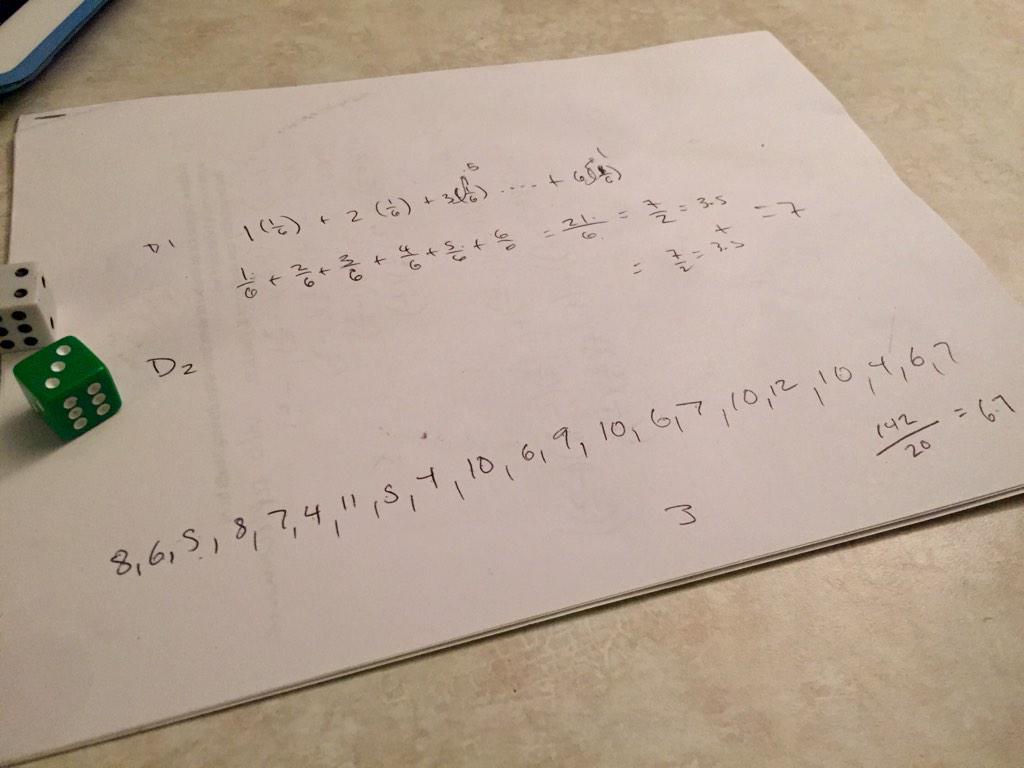 D1 1(1/6) + 2 (1/6) + 3(1/6) .... + 6(1/6)
1/6 + 2/6 + 3/6 + 4/6 + 5/6 + 6/6 = 21/6 = 7/2 = 3.5
= 7/2 = 3.5 + = 7
D2
8, 6, 5, 8, 7, 4, 11, 5, 4, 10, 6, 9, 10, 6, 7, 10, 12, 10, 4, 6, 7
142/20 = 6.7
3